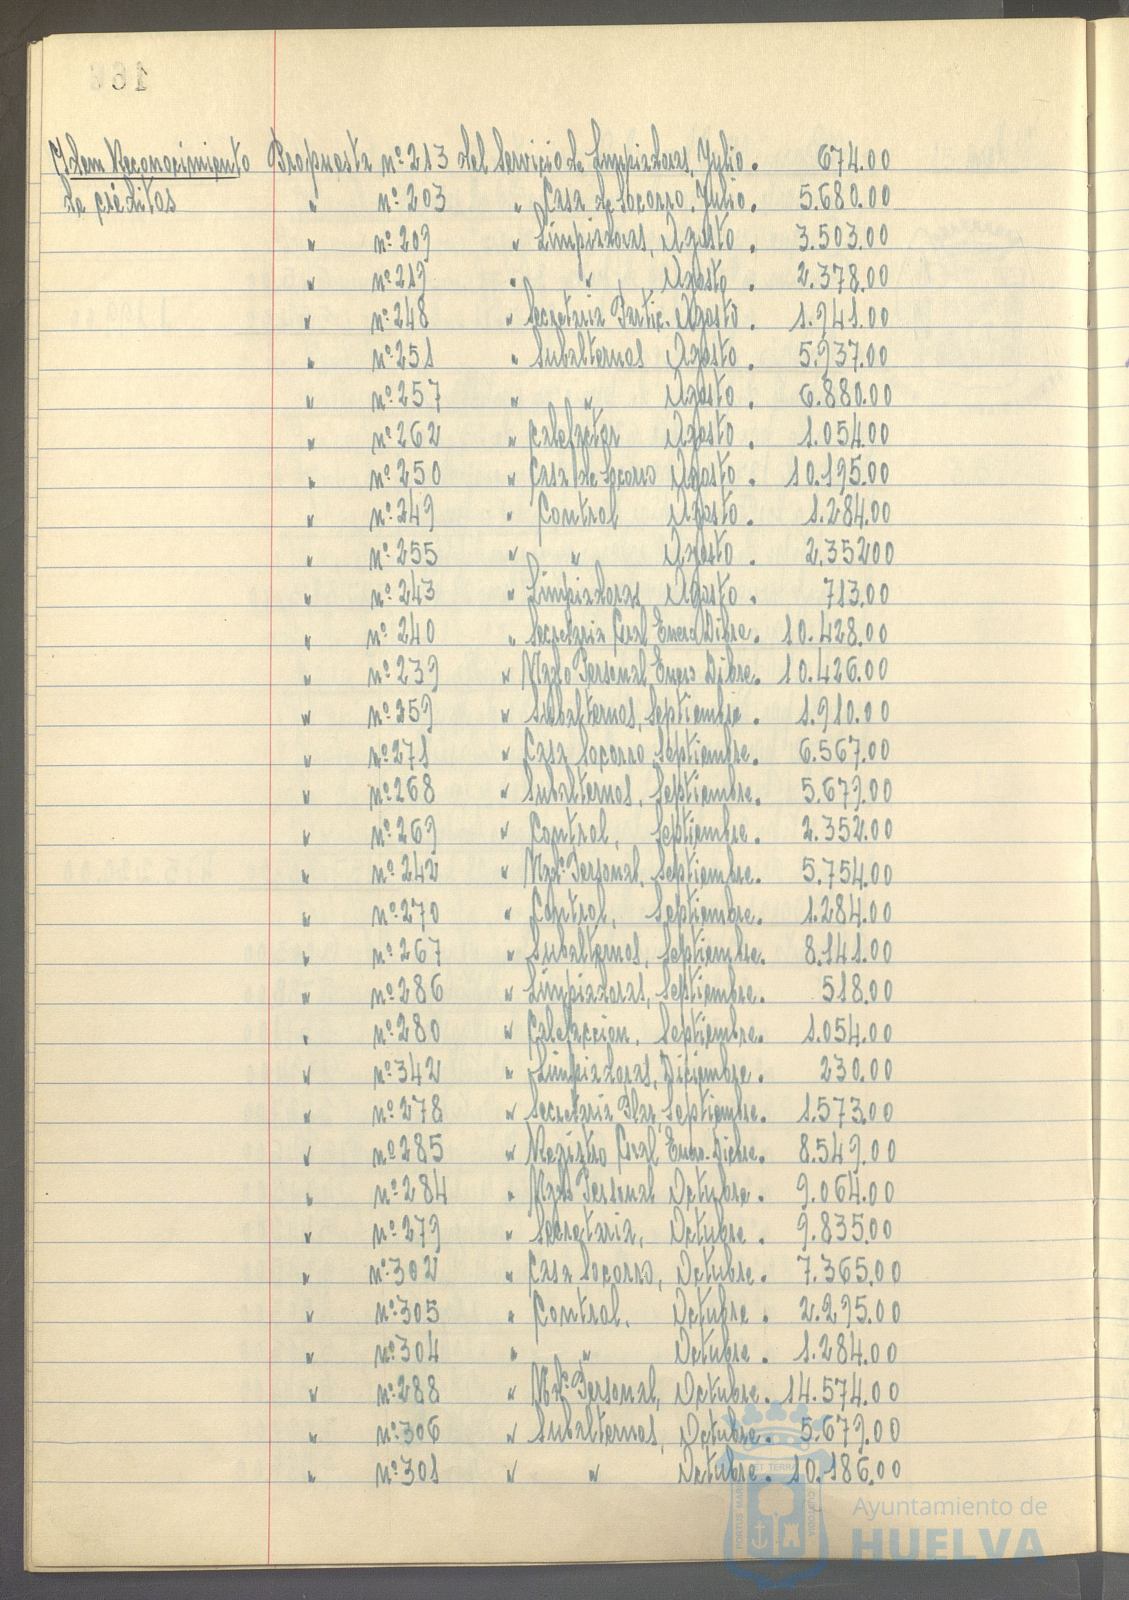 Idem Reconocimiento Propuesta nº 213 del Servicio de Limpiadoras, Julio. 674.00
de créditos " nº 203 " Casa de Socorro. Julio. 5.680.00
" nº 209 " Limpiadoras, Agosto. 3.503.00
" nº 219 " " Agosto. 2.378.00
" nº 248 " Secretaria Partic. Agosto. 1.941.00
" nº 251 " Subalternos Agosto. 5.937.00
" nº 257 " " Agosto. 6.880.00
" nº 262 " Calefactor Agosto. 1.054.00
" nº 250 " Casa de Socorro Agosto. 10.195.00
" nº 249 " Control Agosto. 1.284.00
" nº 255 " " Agosto. 2.35200
" nº 243 " Limpiadoras Agosto. 713.00
" nº 240 " Secretaria Gral Enero Dibre. 10.428.00
" nº 239 " Ngdo Personal Enero Dibre. 10.426.00
" nº 259 " Subalternos, Septiembre. 1.910.00
" nº 271 " Casa Socorro Septiembre. 6.567.00
" nº 268 " Subalternos, Septiembre. 5.679.00
" nº 269 " Control, Septiembre. 2.352.00
" nº 242 " Ngdº Personal, Septiembre. 5.754.00
" nº 270 " Control, Septiembre. 1.284.00
" nº 267 " Subalternos, Septiembre. 8.141.00
" nº 286 " Limpiadoras, Septiembre. 518.00
" nº 280 " Calefaccion, Septiembre. 1.054.00
" nº 342 " Limpiadoras, Diciembre. 230.00
" nº 278 " Secretaria Septiembre. 1.573.00
" nº 285 " Registro Gral Enero-Dicbre. 8.549.00
" nº 284 " Ngdo Personal Octubre. 9.064.00
" nº 279 " Secretaria, Octubre. 9.835.00
" nº 302 " Casa Socorro, Octubre. 7.365.00
" nº 305 " Control, Octubre. 2.295.00
" nº 304 " " Octubre. 1.284.00
" nº 288 " Ngdº Personal, Octubre. 14.574.00
" nº 306 " Subalternos, Octubre. 5.679.00
" nº 301 " " Octubre. 10.186.00
Ayuntamiento de
HUELVA